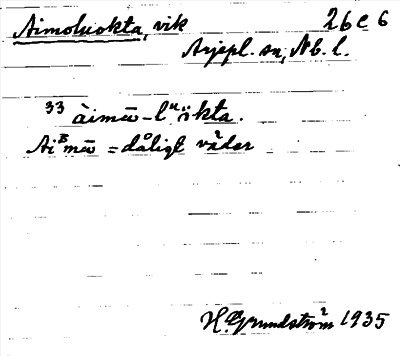 Aimoluokta, vik 26 e 6
Arjepl. sn, Nb. l.
33 àimω̄-lᵘòkta.
Ai³mω̄ = dåligt väder
H. Grundström 1935